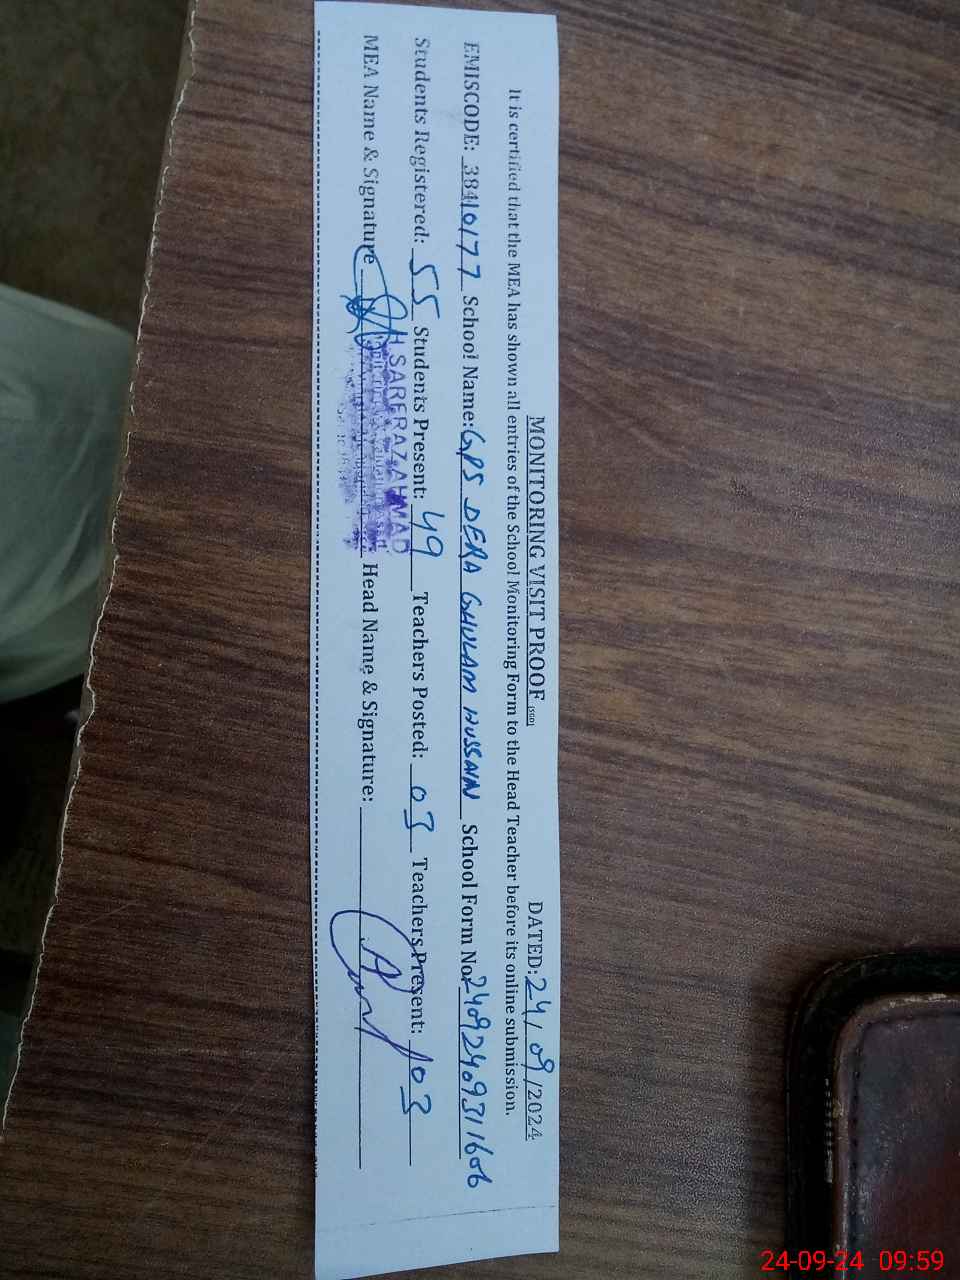 MONITORING VISIT PROOF (SSD) DATED: 24/09/2024
It is certified that the MEA has shown all entries of the School Monitoring Form to the Head Teacher before its online submission.
EMISCODE: 38410177 School Name: GPS DERA GHULAM HUSSAIN School Form No: 24092409311606
Students Registered: 55 Students Present: 49 Teachers Posted: 03 Teachers Present: 03
MEA Name & Signature H SARFRAZ AHMAD Head Name & Signature:
24-09-24 09:59